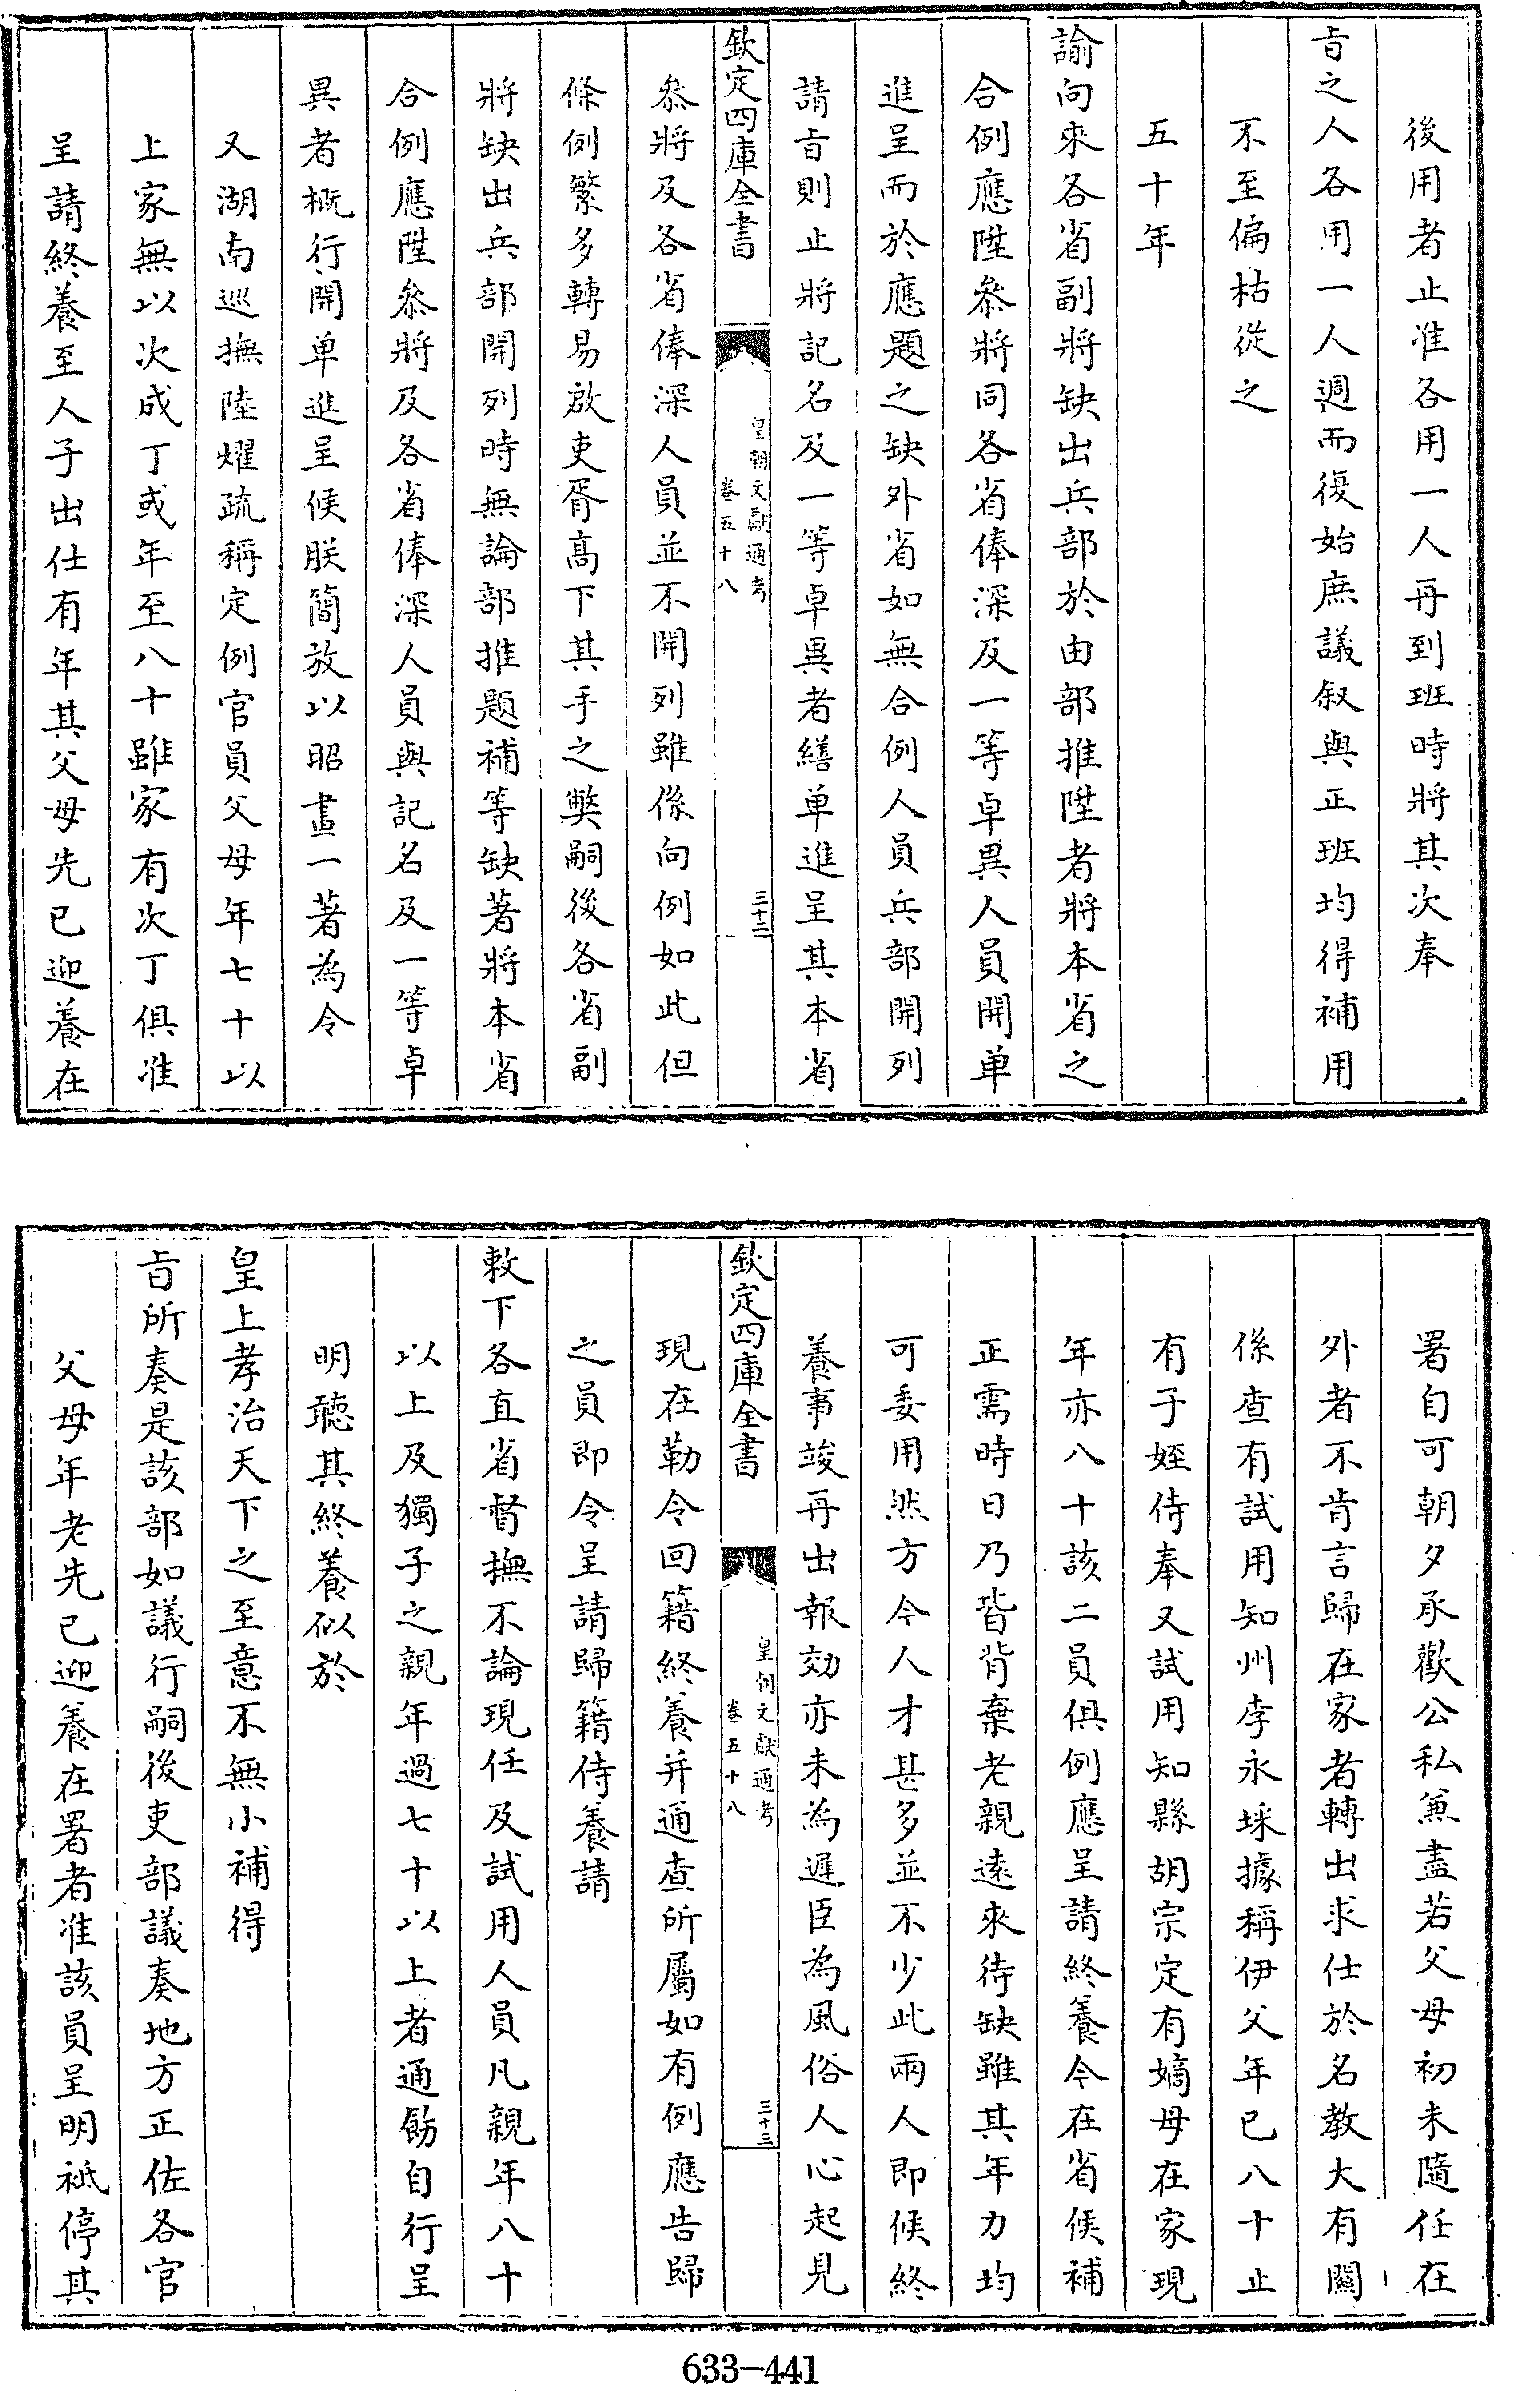 後用者止准各用一人再到班時將其次奉
旨之人各用一人週而復始庶議叙與正班均得補用
不至偏枯從之
五十年
諭向來各省副將缺出兵部於由部推陞者將本省之
合例應陞叅將同各省俸深及一等卓異人員開单
進呈而於應題之缺外省如無合例人員兵部開列
請旨則止將記名及一等卓異者繕单進呈其本省
欽定四庫全書
皇朝文獻通考
卷五十八
三十二
叅將及各省俸深人員並不開列雖係向例如此但
條例繁多轉易啟吏胥高下其手之獘嗣後各省副
將缺出兵部開列時無論部推題補等缺著將本省
合例應陞叅將及各省俸深人員與記名及一等卓
異者概行開单進呈候朕簡放以昭畫一著為令
又湖南巡撫陸燿疏稱定例官員父母年七十以
上家無以次成丁或年至八十雖家有次丁俱准
呈請終養至人子出仕有年其父母先已迎養在
署自可朝夕承歡公私兼盡若父母初未隨任在
外者不肯言歸在家者轉出求仕於名教大有關
係查有試用知州李永埰據稱伊父年已八十止
有子姪侍奉又試用知縣胡宗定有嫡母在家現
年亦八十該二員俱例應呈請終養今在省候補
正需時日乃皆背棄老親遠來待缺雖其年力均
可委用然方今人才甚多並不少此兩人即候終
養事竣再出報効亦未為遲臣為風俗人心起見
欽定四庫全書
皇朝文獻通考
卷五十八
三十三
現在勒令回籍終養并通查所屬如有例應告歸
之員即令呈請歸籍侍養請
敕下各直省督撫不論現任及試用人員凡親年八十
以上及獨子之親年過七十以上者通飭自行呈
明聽其終養似於
皇上孝治天下之至意不無小補得
旨所奏是該部如議行嗣後吏部議奏地方正佐各官
父母年老先已迎養在署者准該員呈明祗停其
633-441